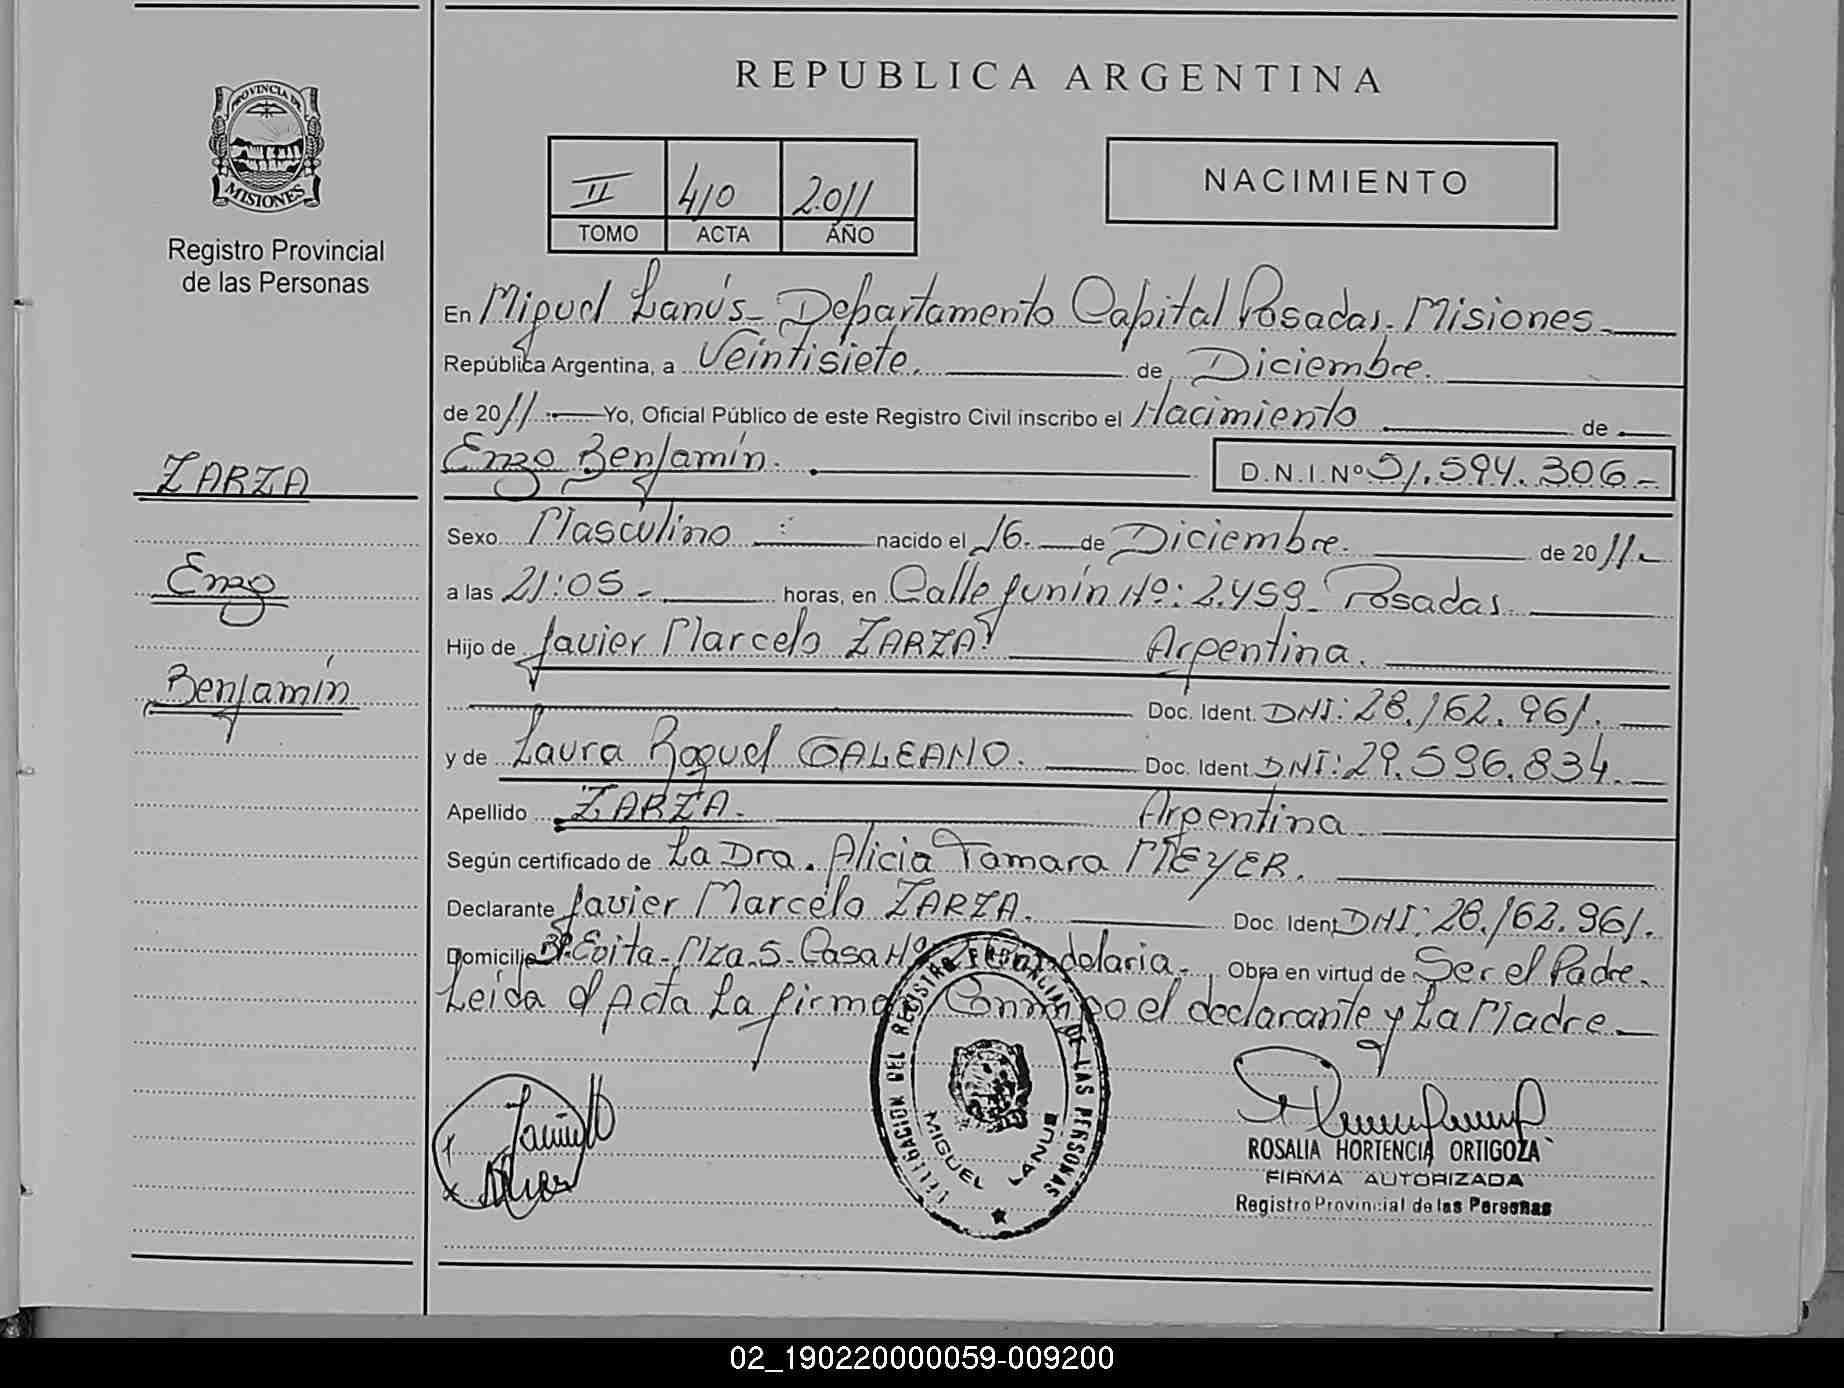 REPUBLICA ARGENTINA
PROVINCIA DE
MISIONES
Registro Provincial
de las Personas
II 410 2.011
TOMO ACTA AÑO
NACIMIENTO
En Miguel Lanús - Departamento Capital Posadas. Misiones.
República Argentina, a Veintisiete. de Diciembre.
de 2011. Yo, Oficial Público de este Registro Civil inscribo el Nacimiento de
Enzo Benjamín. D.N.I. Nº 51.594.306-
ZARZA
Enzo
Benjamín
Sexo Masculino nacido el 16. de Diciembre. de 2011.
a las 21:05 - horas, en Calle Junín Nº: 2.459 - Posadas.
Hijo de Javier Marcelo ZARZA. Argentina.
Doc. Ident. DNI: 28.162.961.
y de Laura Raquel GALEANO. Doc. Ident. DNI: 29.596.834.
Apellido ZARZA. Argentina
Según certificado de La Dra. Alicia Tamara MEYER.
Declarante Javier Marcelo ZARZA. Doc. Ident. DNI: 28.162.961.
Domicilio Bº. Evita - Mza. 5 - Casa Nº 2 Candelaria. Obra en virtud de Ser el Padre.
Leída el Acta La firma Conmigo el declarante y La Madre
DELEGACION DEL REGISTRO PROVINCIAL DE LAS PERSONAS
MIGUEL LANUS
ROSALIA HORTENCIA ORTIGOZA
FIRMA AUTORIZADA
Registro Provincial de las Personas
02_190220000059-009200